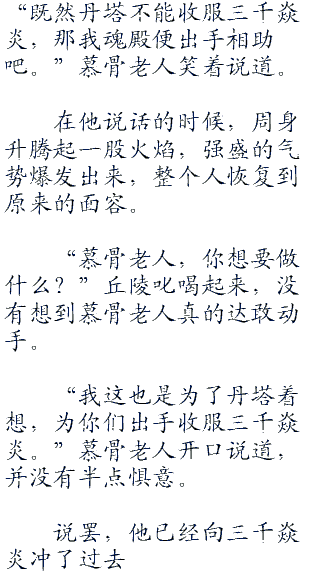 “既然丹塔不能收服三千焱
炎，那我魂殿便出手相助
吧。”慕骨老人笑着说道。
在他说话的时候，周身
升腾起一股火焰，强盛的气
势爆发出来，整个人恢复到
原来的面容。
“慕骨老人，你想要做
什么？”丘陵叱喝起来，没
有想到慕骨老人真的达敢动
手。
“我这也是为了丹塔着
想，为你们出手收服三千焱
炎。”慕骨老人开口说道，
并没有半点惧意。
说罢，他已经向三千焱
炎冲了过去